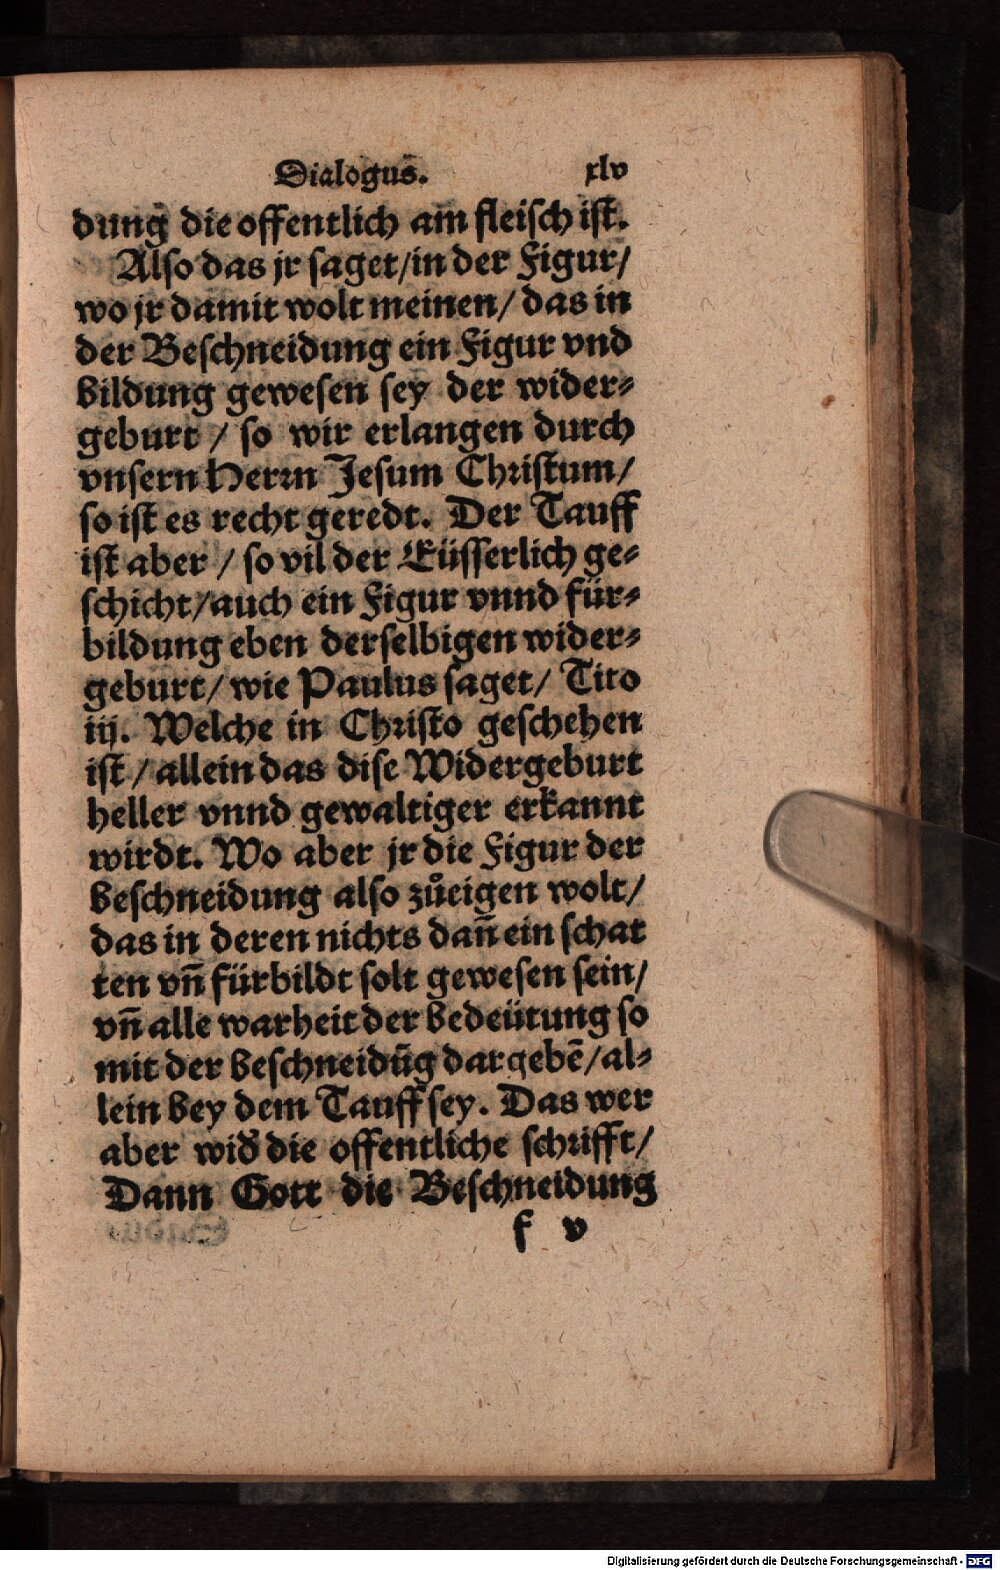 Dialogus. xlv
dung die offentlich am fleisch ist.
Also das jr saget/in der Figur/
wo jr damit wolt meinen/ das in
der Beschneidung ein Figur vnd
bildung gewesen sey der wider⸗
geburt / so wir erlangen durch
vnsern Herrn Jesum Christum/
so ist es recht geredt. Der Tauff
ist aber / so vil der Eüsserlich ge⸗
schicht/auch ein Figur vnnd für⸗
bildung eben derselbigen wider⸗
geburt/ wie Paulus saget/ Tito
iij. Welche in Christo geschehen
ist / allein das dise Widergeburt
heller vnnd gewaltiger erkannt
wirdt. Wo aber jr die Figur der
beschneidung also zůeigen wolt/
das in deren nichts dan̄ ein schat
ten vn̄ fürbildt solt gewesen sein/
vn̄ alle warheit der bedeütung so
mit der beschneidūg dargebē/al⸗
lein bey dem Tauff sey. Das wer
aber wid̕ die offentliche schrifft/
Dann Gott die Beschneidung
f v
Digitalisierung gefördert durch die Deutsche Forschungsgemeinschaft - DFG